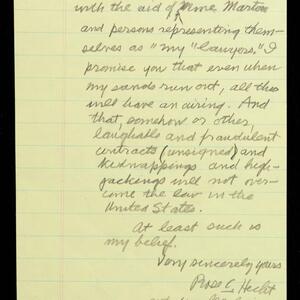 with the aid of Mme. Marton
and persons representing them-
selves as "my "lawyers." I
promise you that even when
my sands run out, all this
will have an airing. And
that, somehow or other,
laughable and fraudulent
contracts (unsigned) and
kidnappings and high-
jackings will not over-
come the law in the
United States.
At least such is
my belief.
Very sincerely yours
Rose C. Hecht